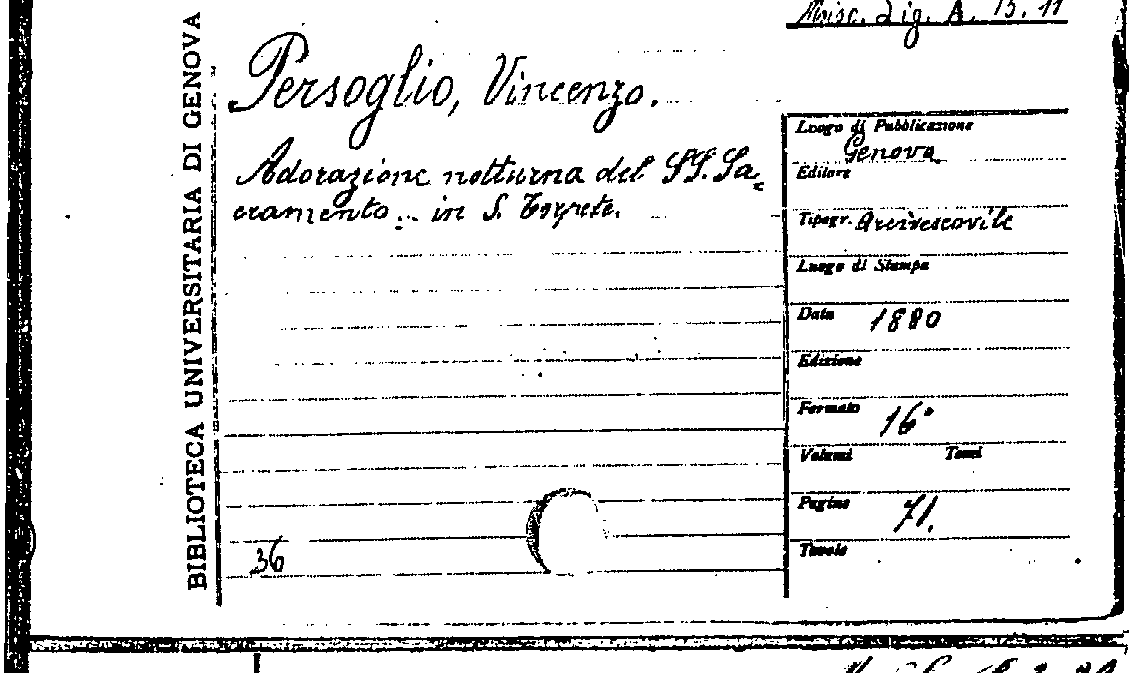 Misc. Lig. A. 13. 11
BIBLIOTECA UNIVERSITARIA DI GENOVA
Persoglio, Vincenzo.
Adorazione notturna del SS. Sa=
cramento... in S. Torpete.
36
Luogo di Pubblicazione
Genova
Editore
Tipogr. Arcivescovile
Luogo di Stampa
Data 1880
Edizione
Formato 16°
Volumi Tomi
Pagine 71.
Tavole